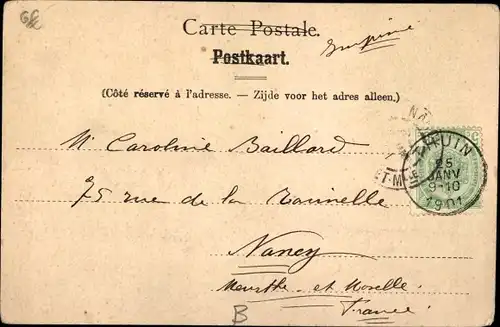 Carte Postale.
Imprimé
Postkaart.
(Côté réservé à l'adresse. — Zijde voor het adres alleen.)
Mˡˡᵉ Caroline Baillard
THUIN
25
JANV
9-10
1901
75 rue de la
Nancy
Meurthe-et-Moselle
France
B